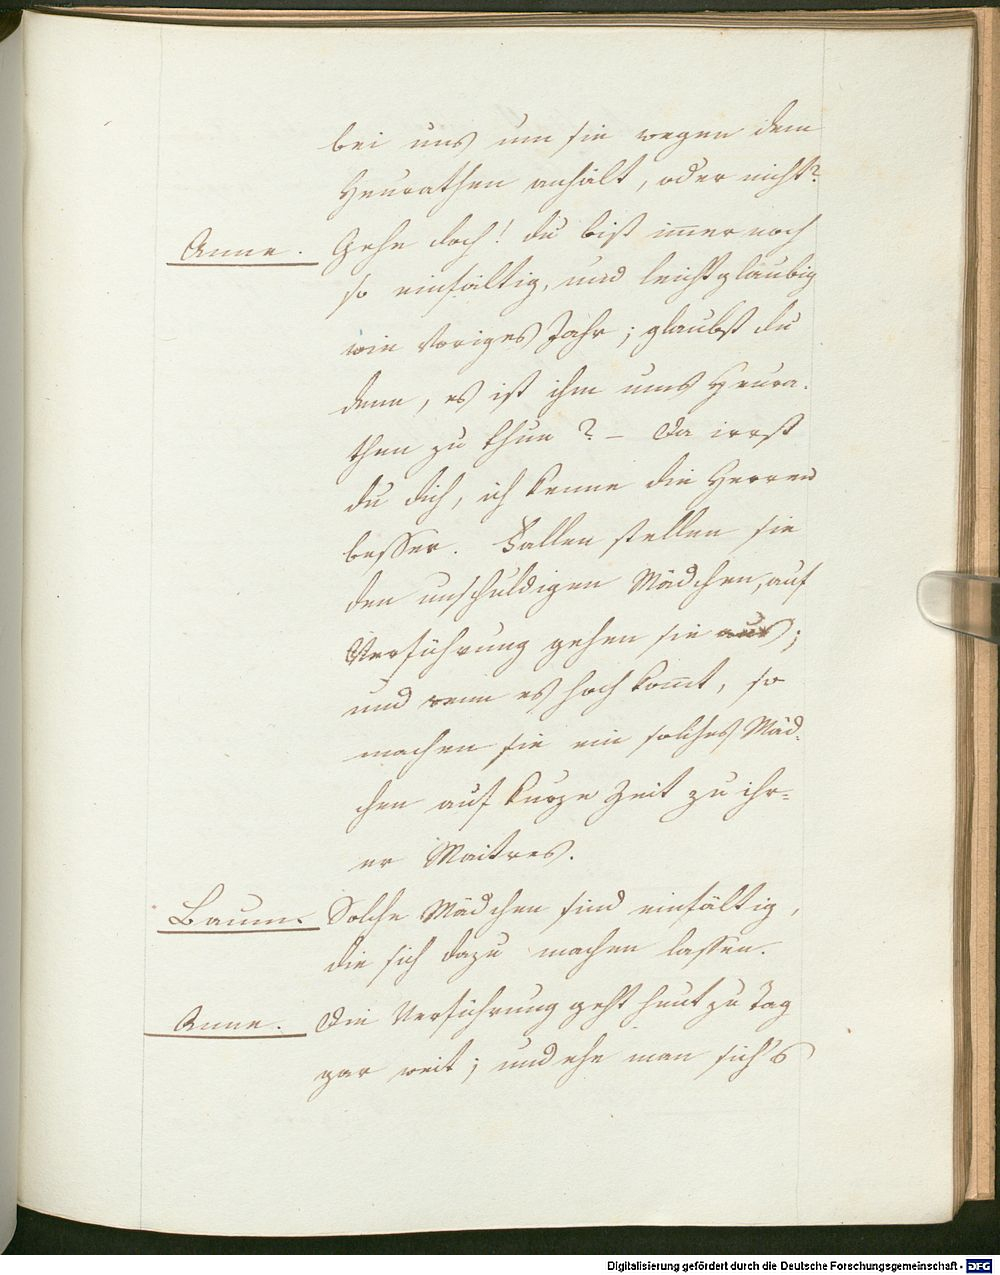 bei uns um sie wegen dem
Heurathen anhält, oder nicht?
Anne. Gehe doch! du bist immer noch
so einfältig, und leichtglaubig
wie voriges Jahr; glaubst du
denn, es ist ihm ums Heura-
then zu thun? – Da irrst
du dich, ich kenne die Herren
besser. Fallen stellen sie
den unschuldigen Mädchen, auf
Verführung gehen sie aus;
und wenn es hoch kommt, so
machen sie ein solches Mäd-
chen auf kurze Zeit zu ihr-
er Maitres.
Baum. Solche Mädchen sind einfältig,
die sich dazu machen lassen.
Anne. Die Verführung geht heut zu Tag
gar weit; und ehe man sich's
Digitalisierung gefördert durch die Deutsche Forschungsgemeinschaft - DFG